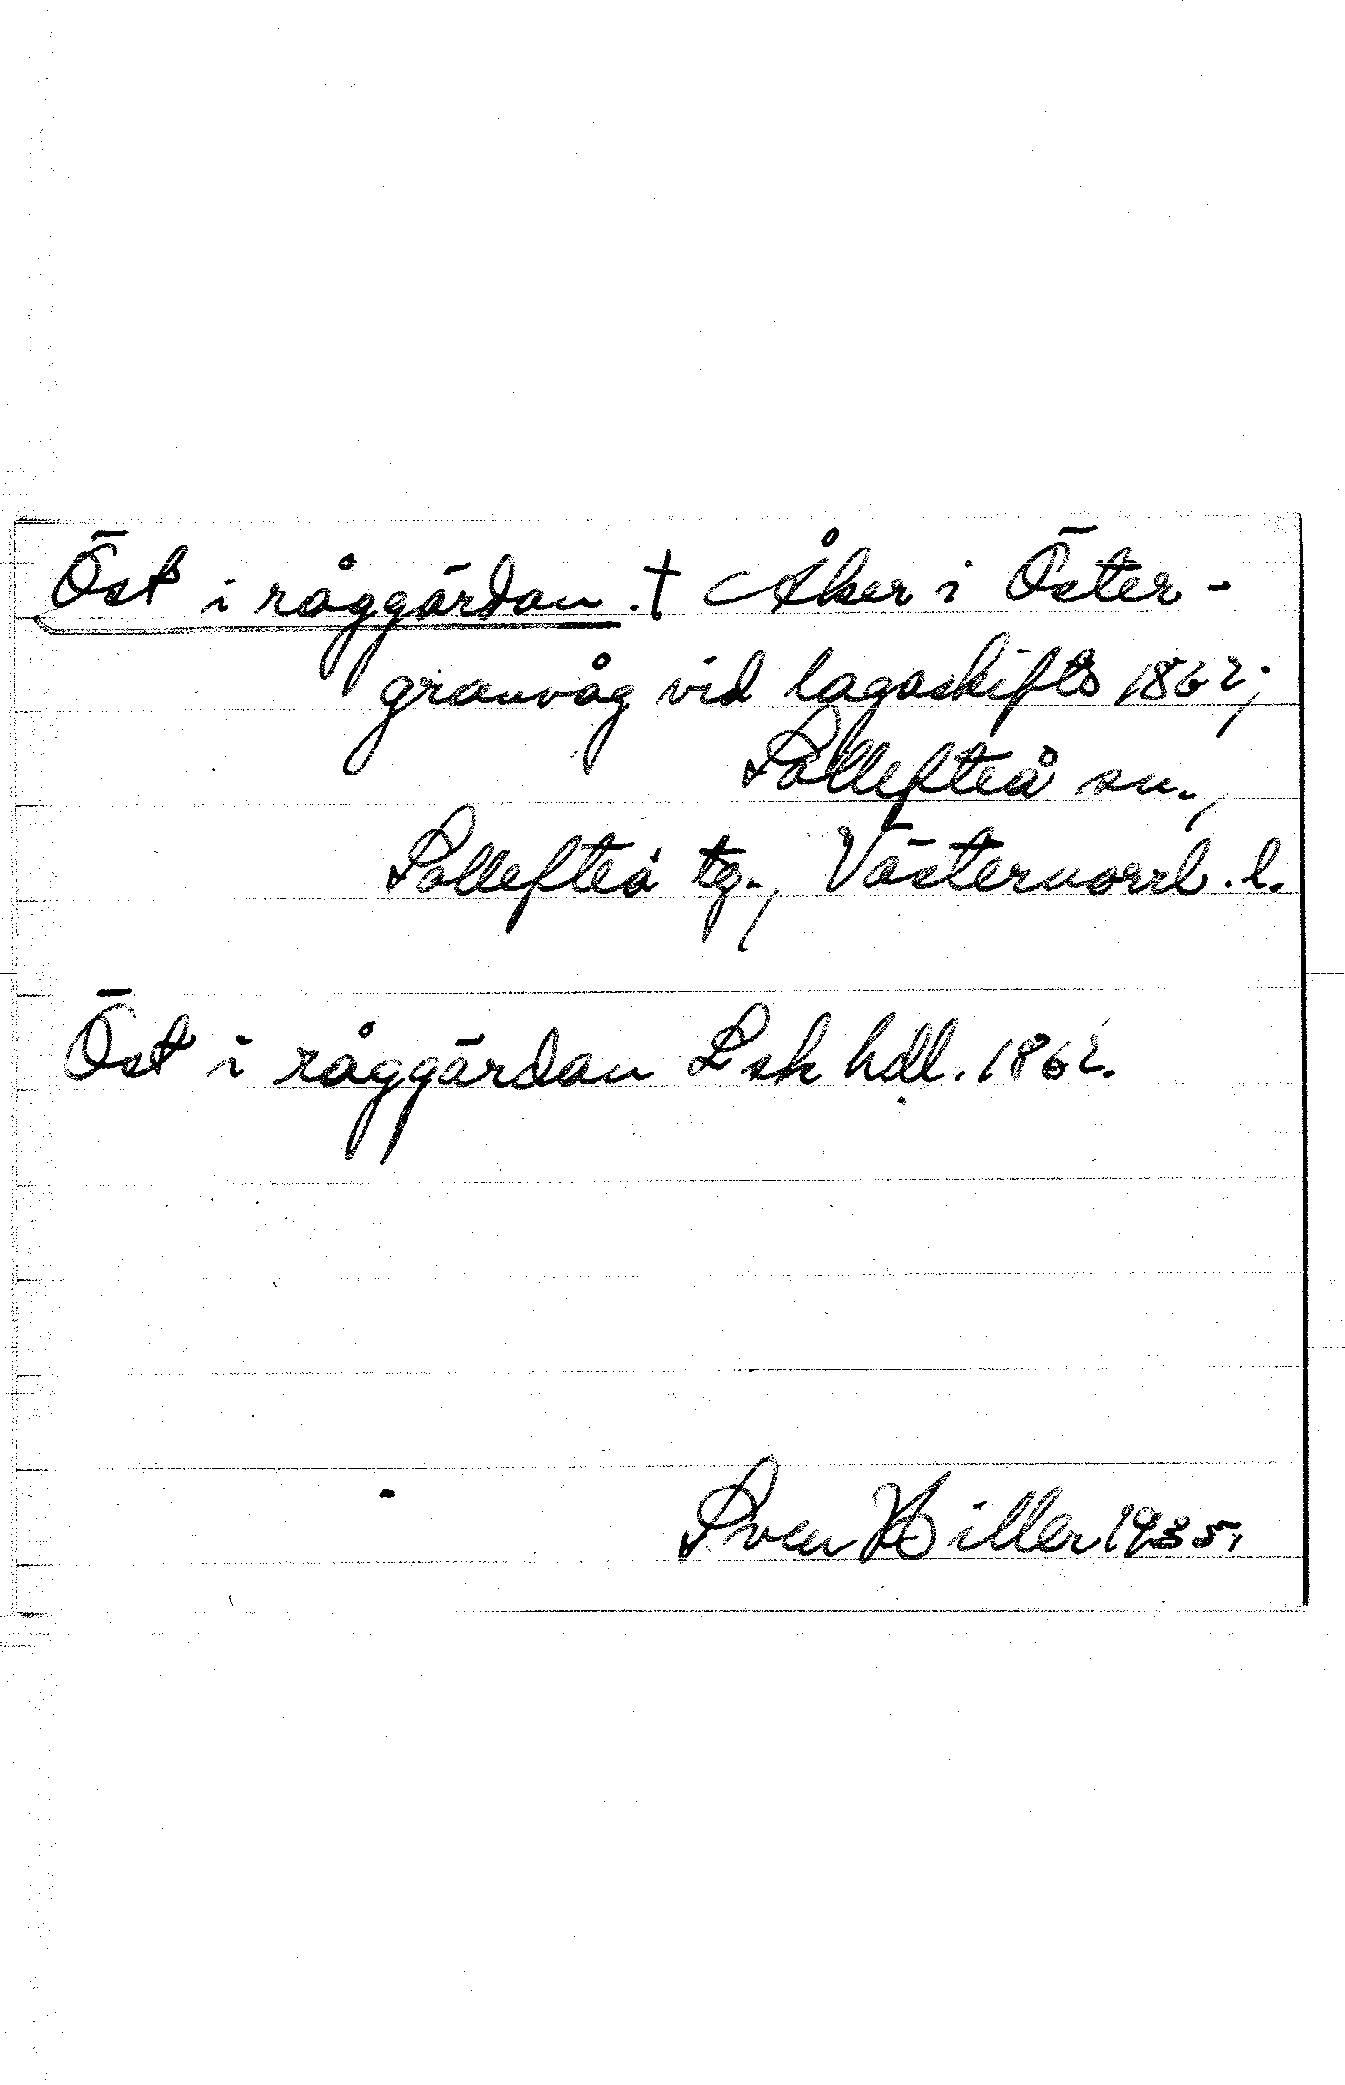 Öst i råggärdan. † Åker i Öster-
granvåg vid lagaskifts 1862;
Sollefteå sn.,
Sollefteå tg., Västernorrl. l.
Öst i råggärdan Lsk hdl. 1862.
Sven Hiller 1935.